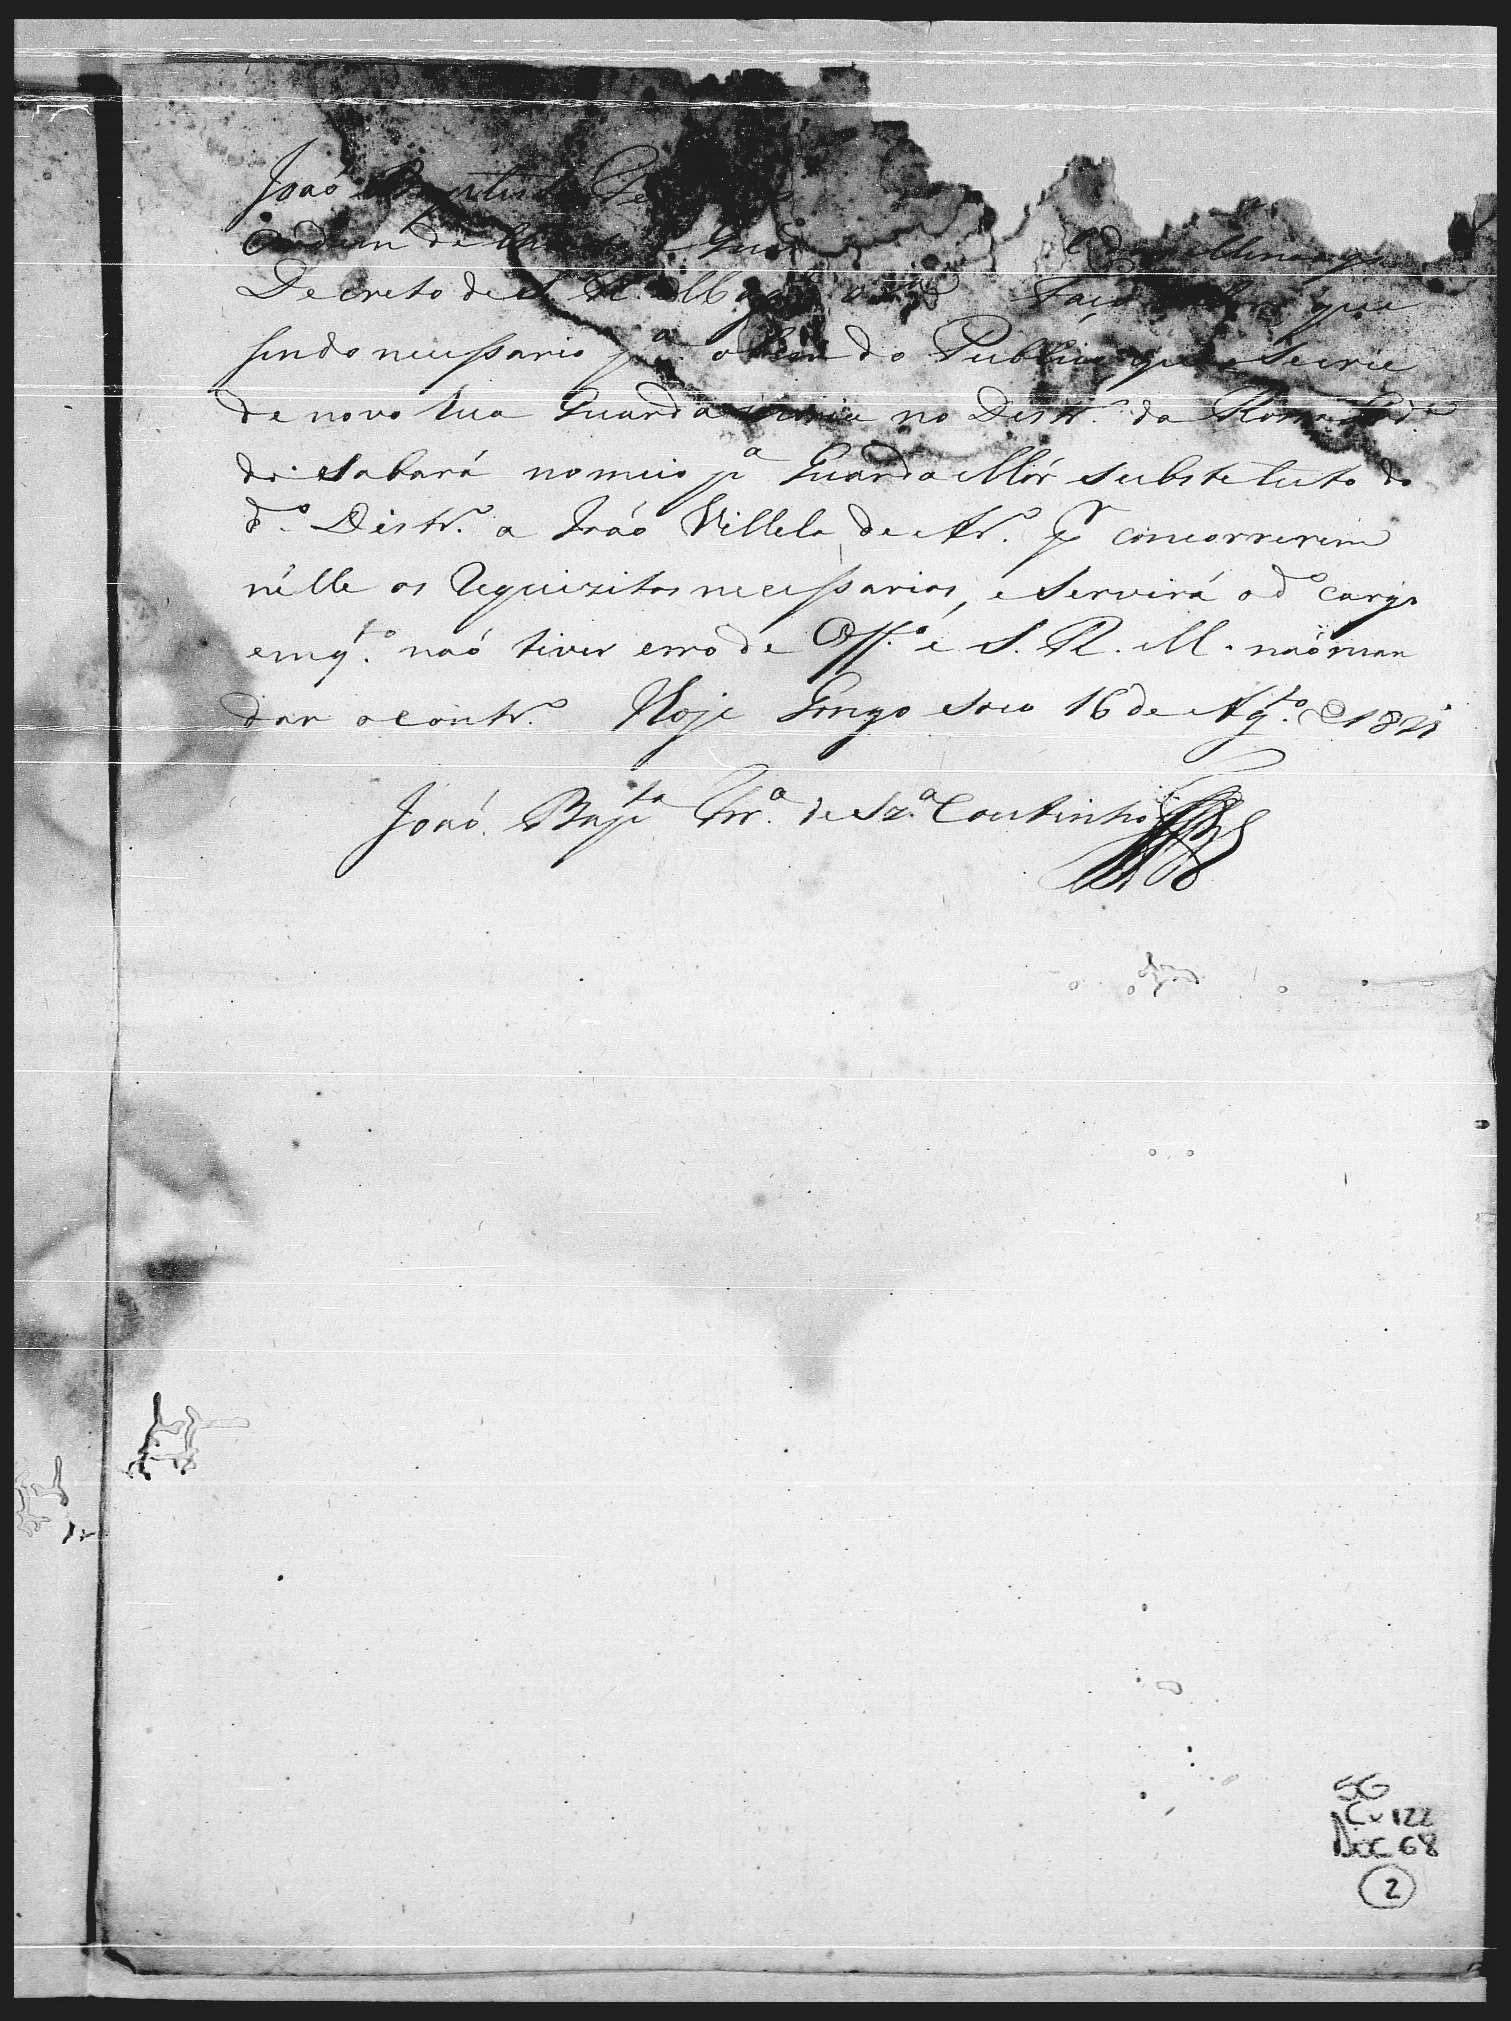 Joaó Baptista
Ordem de
Decreto de S. R. Mag.e Faço que
sendo necessario p.a o bem do Publico que se crie
de novo hua Guarda moria no Destr.o da
de Sabará nomeio p.a Guarda Mór substetuto do
d.o Distr.o a Joáo Villela de Ar.o p.r concorrerem
nélle os Requizitos necessarios, e Servirá o d.o cargo
emq.to naó tiver erro de Off.o e S. R. M. naó man
dar o contr.o Hoje Gongo Soco 16 de Ag.to de 1821
Joaó Bap.ta Frr.a de Sz.a Coutinho
SG
Cx 122
Doc 68
2